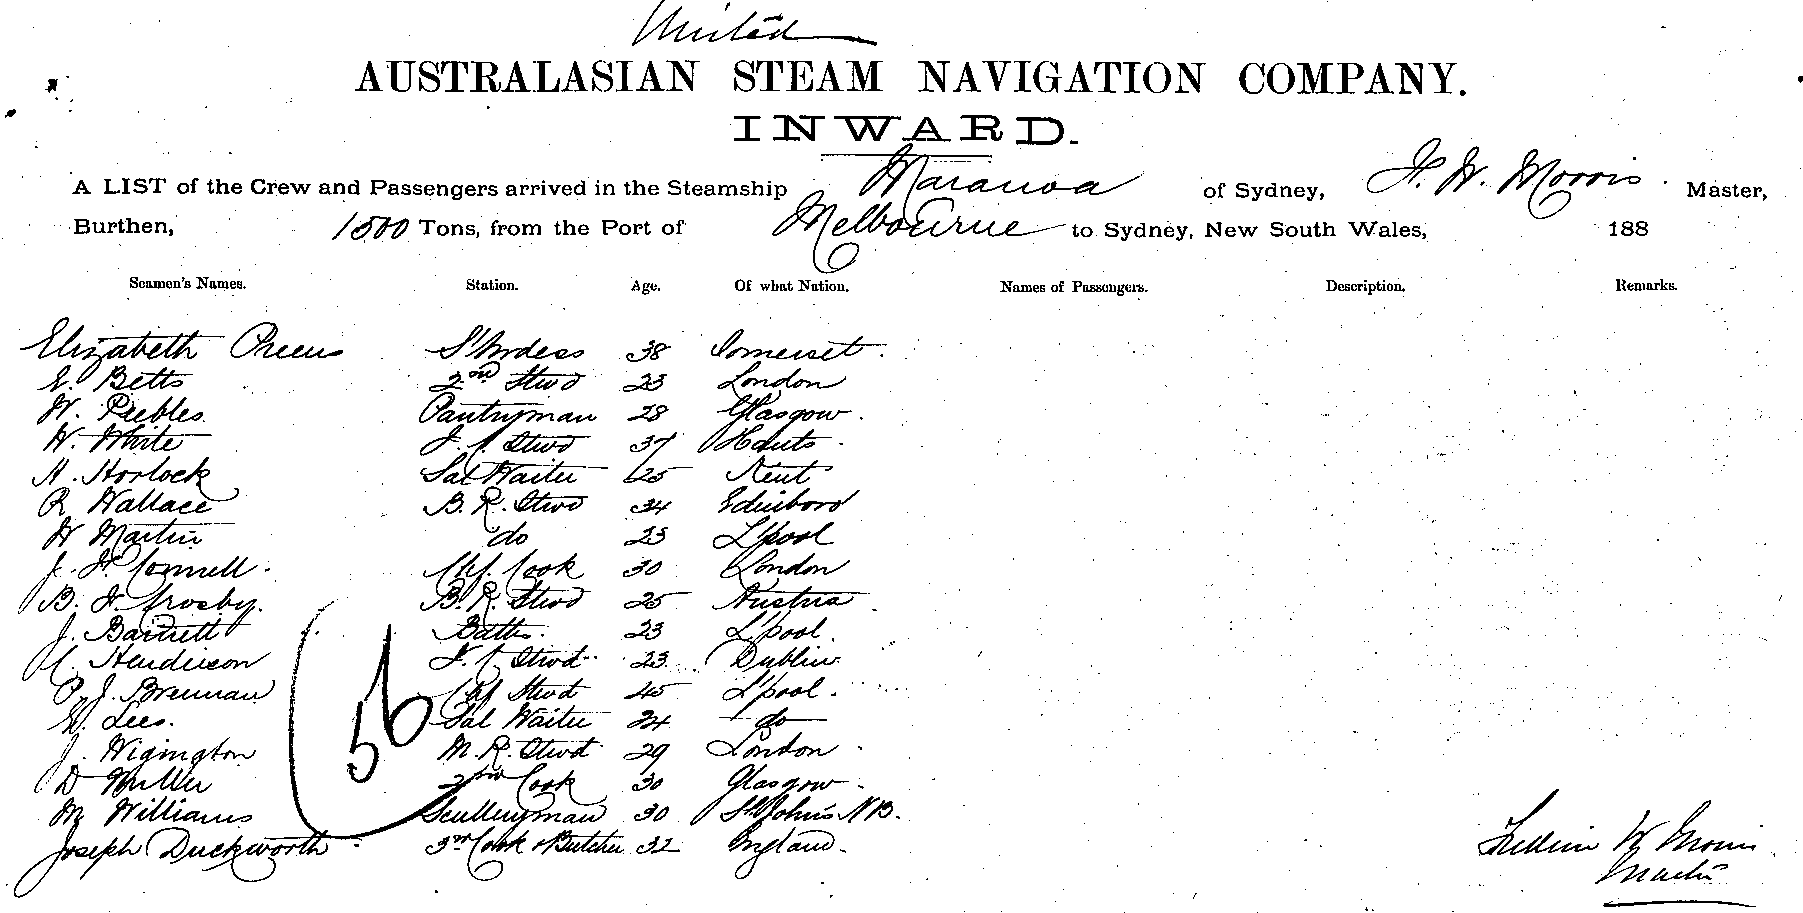 United
AUSTRALASIAN STEAM NAVIGATION COMPANY.
INWARD.
A LIST of the Crew and Passengers arrived in the Steamship Maranoa of Sydney, F. W. Morris. Master,
Burthen, 1500 Tons, from the Port of Melbourne to Sydney, New South Wales, 188
Seamen's Names. Station. Age. Of what Nation. Names of Passengers. Description. Remarks.
Elizabeth S'ardess 38 Somerset.
E. Betts 2nd Stwd 23 London
W. Peebles. Pantryman 28 Glasgow.
W. White F. C. Stwd 37 Hants.
H. Horlock Sal Waiter 25 Kent
R Wallace B. R. Stwd 34 Edinboro
W Martin do 23 L'pool
J. H. Connell. Chf. Cook 30 London
B. H. Crosby. B. R. Stwd 25 Austria.
J. Bartlett 23 L'pool.
C. Henderson F. C Stwd. 23 Dublin
P. J. Brennan Chf Stwd 45 L'pool.
W. Lees. Sal Waiter 24 do
J. Wigington M. R. Stwd 29 London.
D Miller 2nd Cook 30 Glasgow.
M Williams Sculleryman 30 St John's N B.
Joseph Duckworth 3rd Cook & Butcher 32 England.
56
W Morris
Master